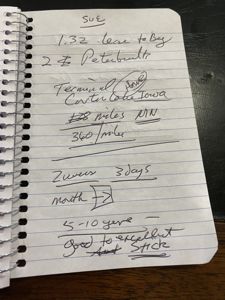 SUE
1.32 Lease to Buy
2 Peterbuilts
Terminal
Carter Lake Iowa
miles MN
360/miles
2 weeks 3 days
month
5-10 years —
Good to excellent
Stick